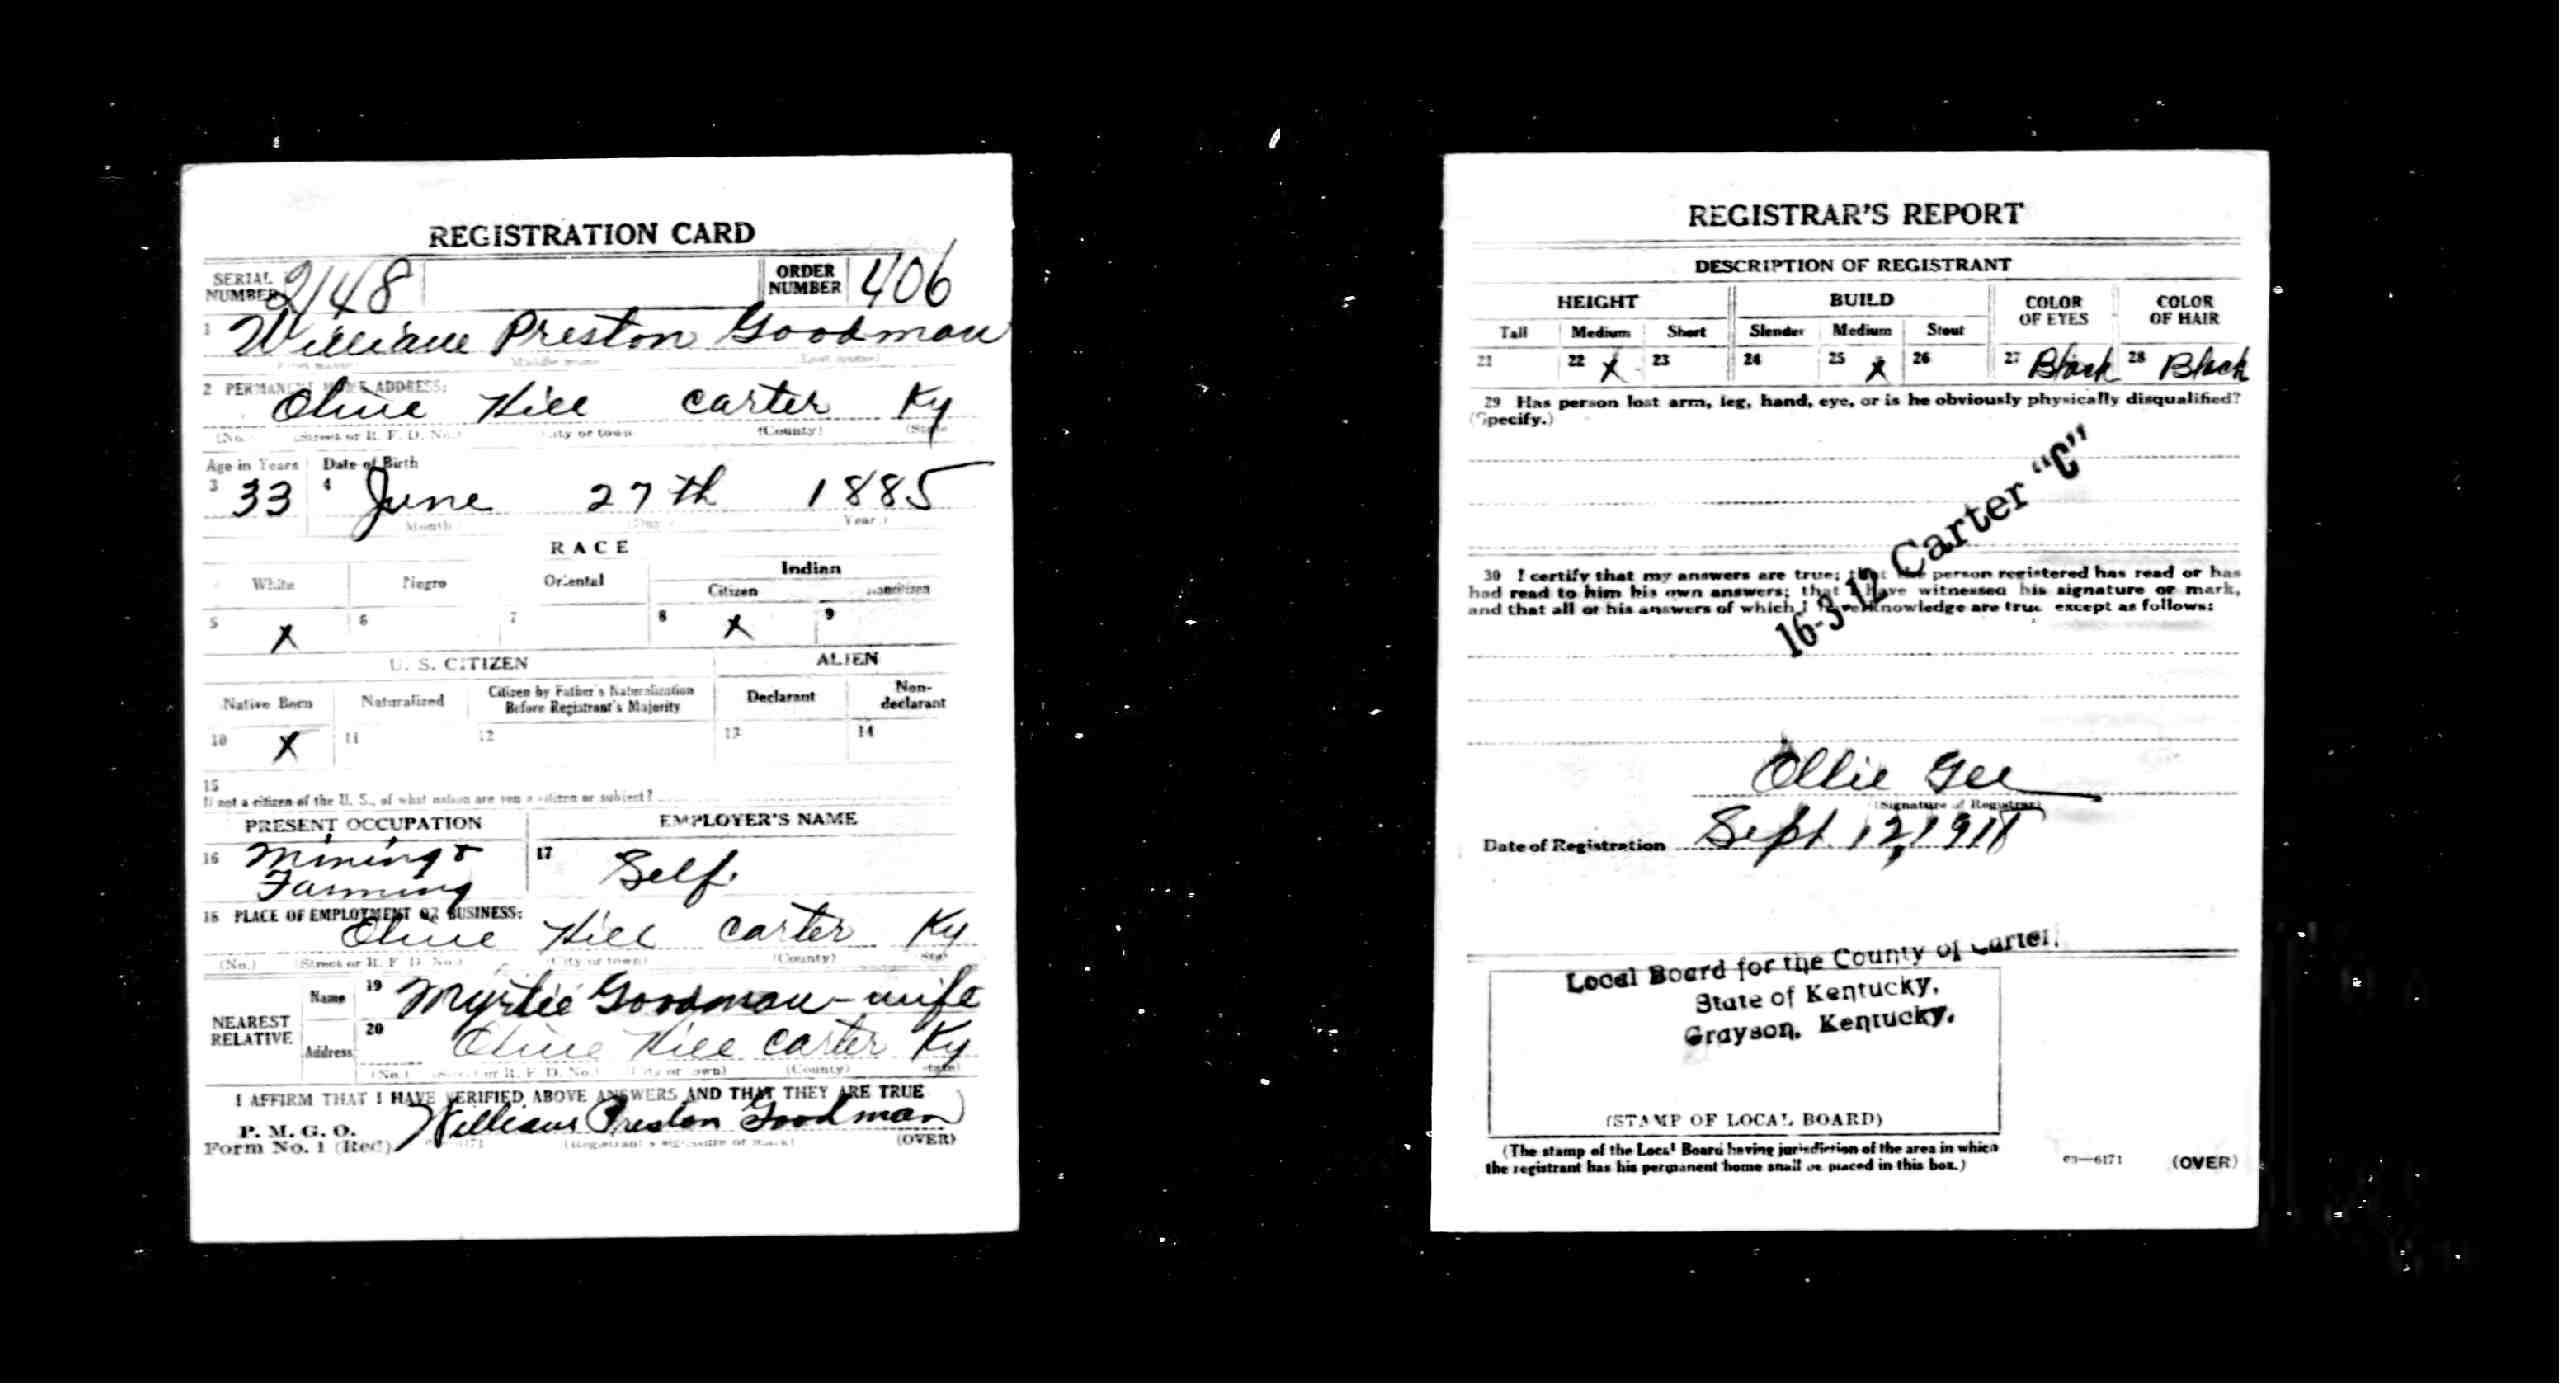 REGISTRATION CARD
SERIAL NUMBER 2148 ORDER NUMBER 406
1 William Preston Goodman
(First name) (Middle name) (Last name)
2 PERMANENT HOME ADDRESS:
Olive Hill Carter Ky
(No.) (Street or R. F. D. No.) (City or town) (County) (State)
Age in Years Date of Birth
3 33 4 June 27th 1885
(Month) (Day) (Year.)
RACE
White Negro Oriental Indian
Citizen Noncitizen
5 X 6 7 8 X 9
U. S. CITIZEN ALIEN
Native Born Naturalized Citizen by Father's Naturalization Before Registrant's Majority Declarant Non-declarant
10 X 11 12 13 14
15
If not a citizen of the U. S., of what nation are you a citizen or subject?
PRESENT OCCUPATION EMPLOYER'S NAME
16 Mining & Farming 17 Self.
18 PLACE OF EMPLOYMENT OR BUSINESS:
Olive Hill Carter Ky
(No.) (Street or R. F. D. No.) (City or town) (County) (State)
NEAREST RELATIVE Name 19 Myrtie Goodman - wife
Address 20 Olive Hill Carter Ky
(No.) (Street or R. F. D. No.) (City or town) (County) (State)
I AFFIRM THAT I HAVE VERIFIED ABOVE ANSWERS AND THAT THEY ARE TRUE
P. M. G. O.
Form No. 1 (Red) William Preston Goodman
(Registrant's signature or mark) (OVER)
REGISTRAR'S REPORT
DESCRIPTION OF REGISTRANT
HEIGHT BUILD COLOR OF EYES COLOR OF HAIR
Tall Medium Short Slender Medium Stout
21 22 X 23 24 25 X 26 27 Black 28 Black
29 Has person lost arm, leg, hand, eye, or is he obviously physically disqualified?
(Specify.)
16-3-12 Carter "C"
30 I certify that my answers are true; that the person registered has read or has
had read to him his own answers; that I have witnessed his signature or mark,
and that all of his answers of which I have knowledge are true except as follows:
Ollie Gee
(Signature of Registrar)
Date of Registration Sept 12, 1918
Local Board for the County of Carter,
State of Kentucky,
Grayson, Kentucky.
(STAMP OF LOCAL BOARD)
(The stamp of the Local Board having jurisdiction of the area in which
the registrant has his permanent home shall be placed in this box.)
03—6171 (OVER)